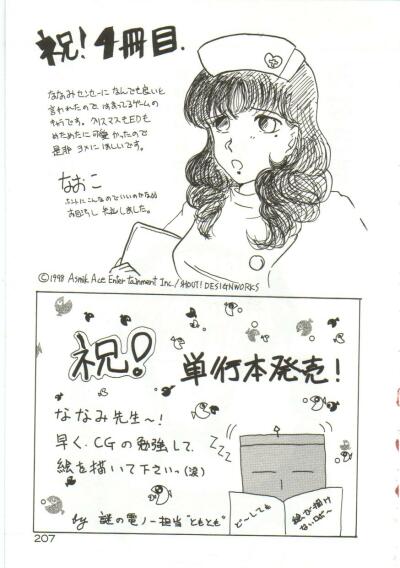 祝! 4冊目.
ななみセンセーになんでも良いと
言われたので、はまってるゲームの
キャラです。クリスマスもEDも
めためたに可愛かったので
是非ヨメにほしいです。
なおこ
ホントにこんなのでいいのかな
お目汚し失礼しました。
©1998 Asmik Ace Entertainment Inc./SHOUT! DESIGNWORKS
祝! 単行本発売!
ななみ先生〜!
早くCGの勉強して
絵を描いて下さいっ(涙)
ZZZ
ど〜しても
絵が描け
ないのだ〜
by 謎の電ノー担当"ともとも"
207